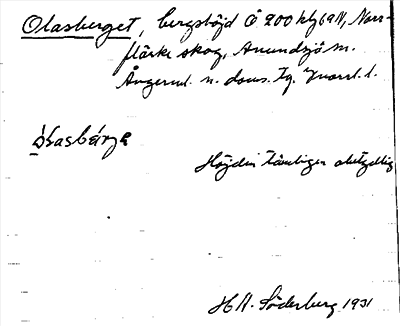 Olasberget, bergshöjd Ö 200 kbg 6 a 11, Norr-
flärke skog, Anundsjö sn.
Ångerml. n. doms. tg.
òlasbárje
Höjden tämligen obetydlig
H A. Söderberg 1931